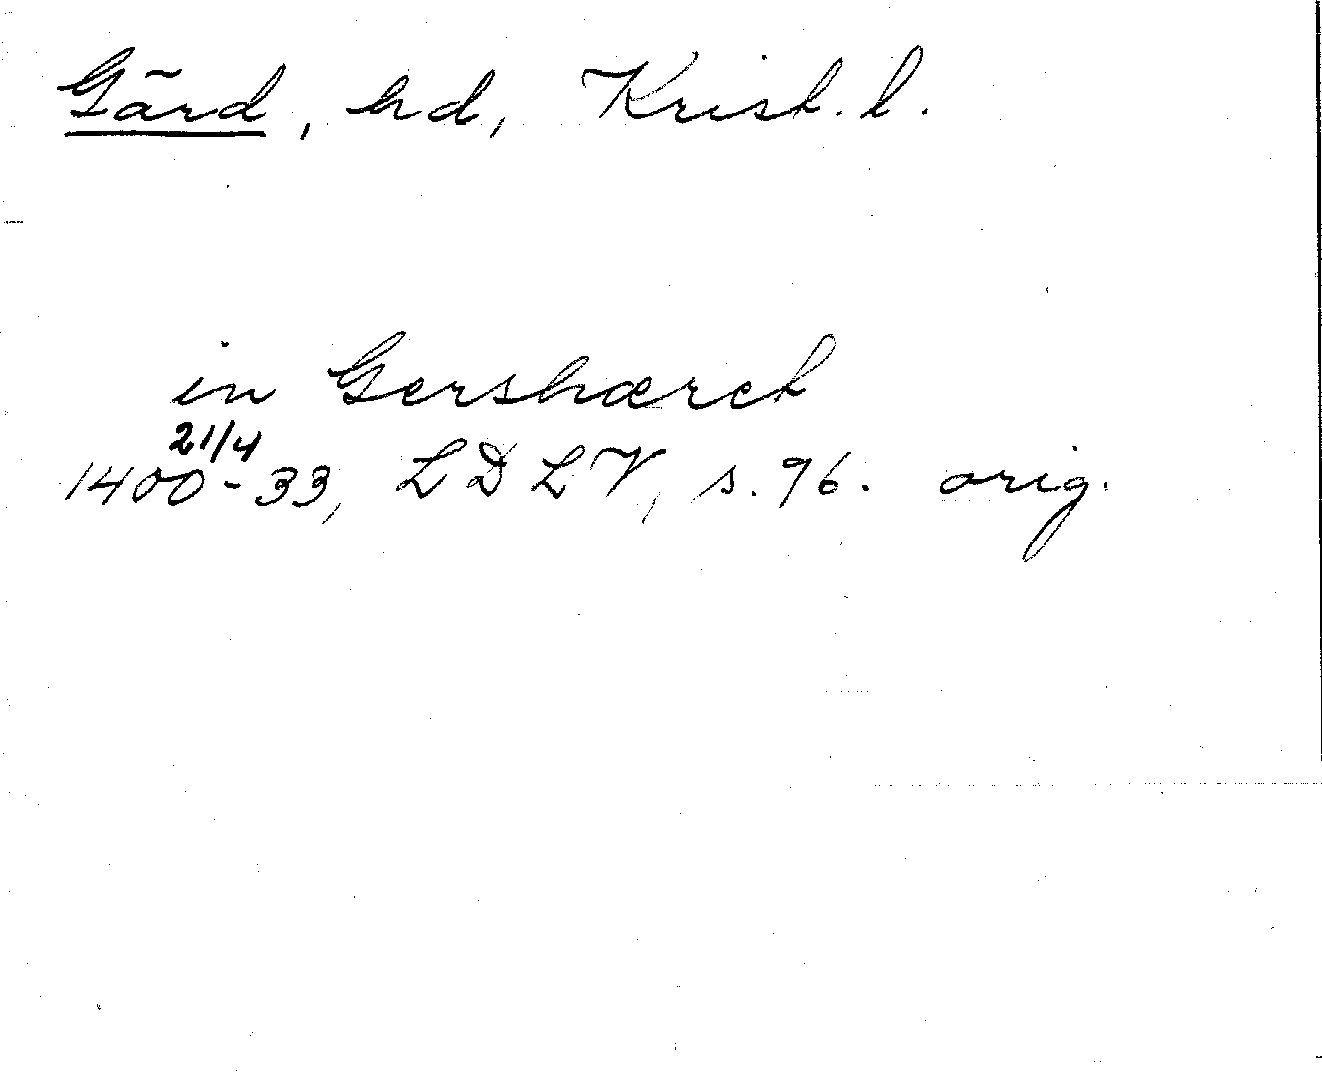 Gärd, hd, Krist. l.
in Gershæret
21/4
1400-33, LDLV, s. 96. orig.